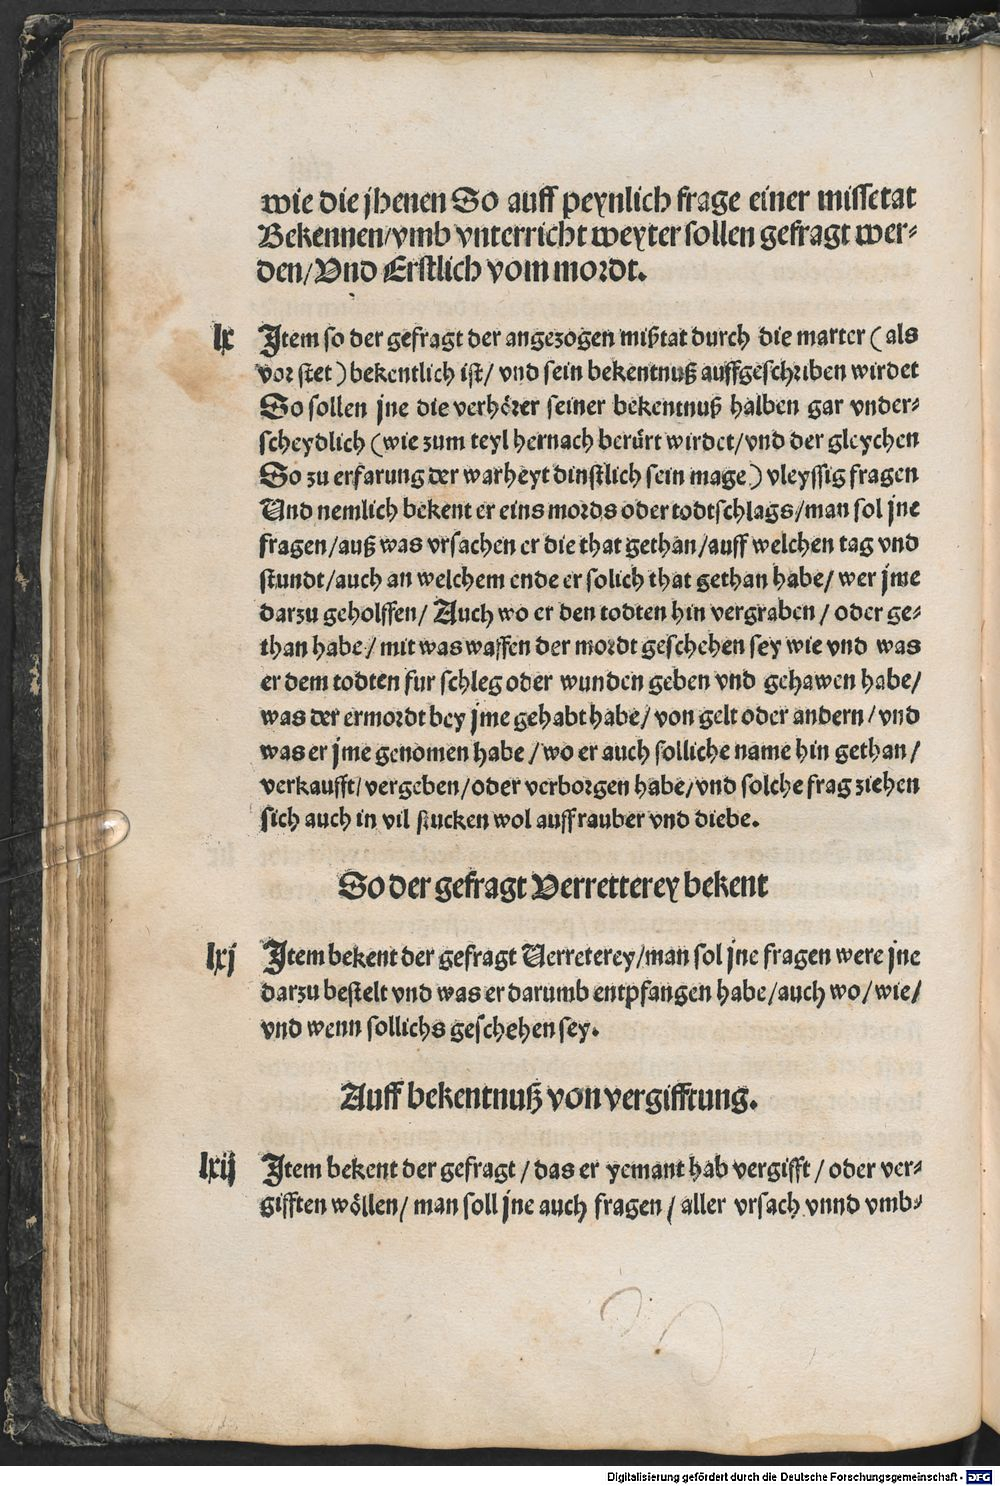 wie die jhenen So auff peynlich frage einer missetat
Bekennen/vmb vnterricht weyter sollen gefragt wer⸗
den/Vnd Erstlich vom mordt.
lx Jtem so der gefragt der angezogen mißtat durch die marter (als
vor stet) bekentlich ist/ vnd sein bekentnuß auffgeschriben wirdet
So sollen jne die verhörer seiner bekentnuß halben gar vnder⸗
scheydlich (wie zum teyl hernach berürt wirdet/vnd der gleychen
So zu erfarung der warheyt dinstlich sein mage) vleyssig fragen
Und nemlich bekent er eins mords oder todtschlags/man sol jne
fragen/auß was vrsachen er die that gethan/auff welchen tag vnd
stundt/auch an welchem ende er solich that gethan habe/ wer jme
darzu geholffen/ Auch wo er den todten hin vergraben/ oder ge⸗
than habe/ mit was waffen der mordt geschehen sey wie vnd was
er dem todten fur schleg oder wunden geben vnd gehawen habe/
was der ermordt bey jme gehabt habe/ von gelt oder andern/ vnd
was er jme genomen habe/wo er auch solliche name hin gethan/
verkaufft/ vergeben/oder verborgen habe/vnd solche frag ziehen
sich auch in vil stucken wol auff rauber vnd diebe.
So der gefragt Verretterey bekent
lxj Jtem bekent der gefragt Verreterey/man sol jne fragen were jne
darzu bestelt vnd was er darumb entpfangen habe/auch wo/wie/
vnd wenn sollichs geschehen sey.
Auff bekentnuß von vergifftung.
lxij Jtem bekent der gefragt/ das er yemant hab vergifft/ oder ver⸗
gifften wöllen/ man soll jne auch fragen/ aller vrsach vnnd vmb⸗
Digitalisierung gefördert durch die Deutsche Forschungsgemeinschaft - DFG